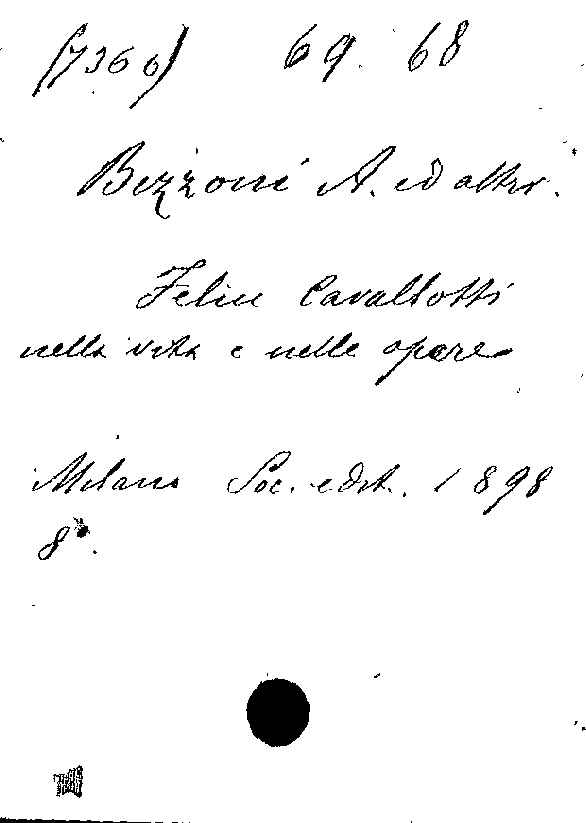 (7366) 69. 68
Bizzoni A. ed altri.
Felice Cavallotti
nella vita e nelle opere
Milano Soc. edit. 1898
8°.